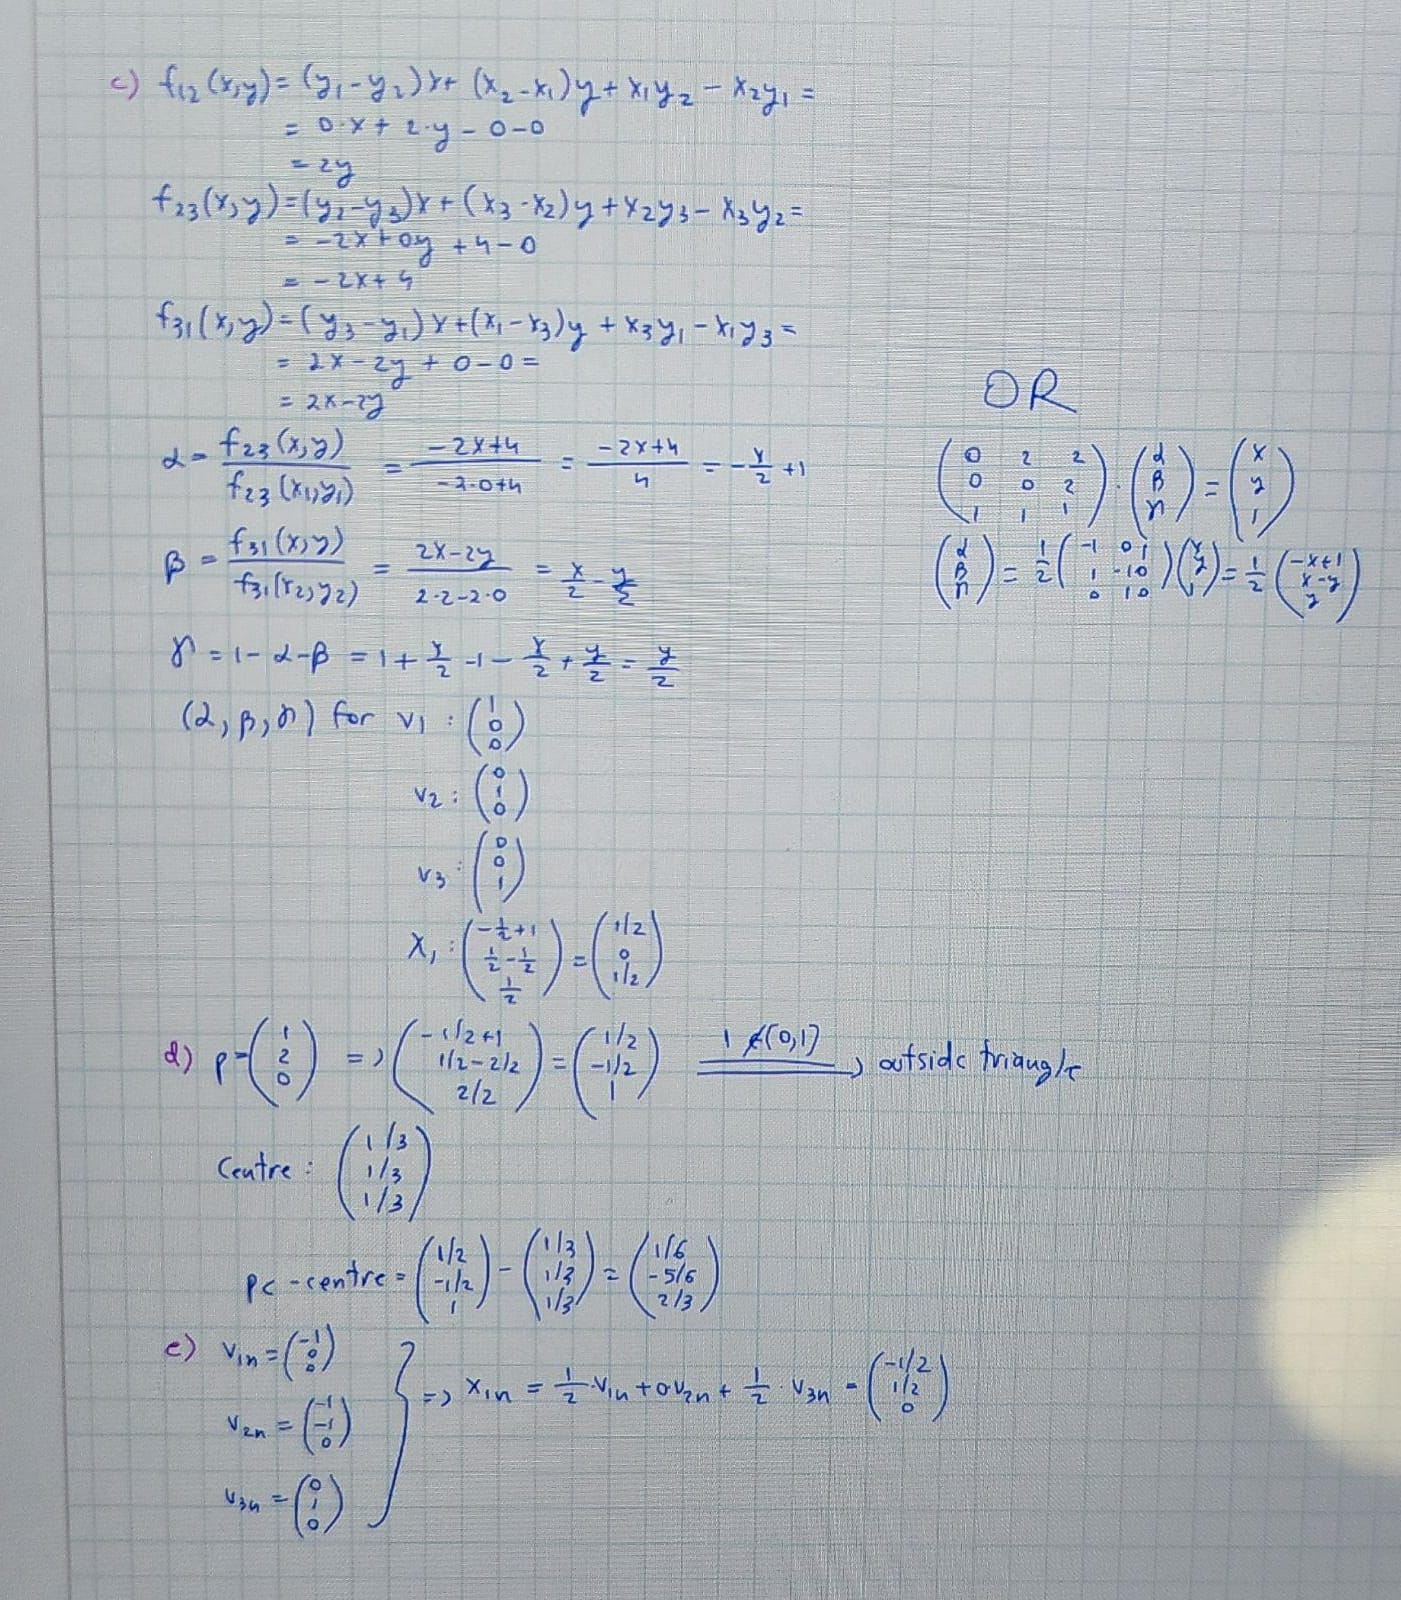 c) f₁₂(x,y) = (y₁-y₂)x + (x₂-x₁)y + x₁y₂ - x₂y₁ =
= 0·x + 2·y - 0-0
= 2y
f₂₃(x,y) = (y₂-y₃)x + (x₃-x₂)y + x₂y₃ - x₃y₂ =
= -2x + 0y + 4-0
= -2x + 4
f₃₁(x,y) = (y₃-y₁)x + (x₁-x₃)y + x₃y₁ - x₁y₃ =
= 2x - 2y + 0-0 =
= 2x-2y
α = f₂₃(x,y) / f₂₃(x₁,y₁) = (-2x+4) / (-2·0+4) = (-2x+4) / 4 = -x/2 + 1
β = f₃₁(x,y) / f₃₁(x₂,y₂) = (2x-2y) / (2·2-2·0) = x/2 - y/2
γ = 1-α-β = 1 + x/2 - 1 - x/2 + y/2 = y/2
(α, β, γ) for v₁ : (1 0 0)
v₂ : (0 1 0)
v₃ : (0 0 1)
x₁ : (-1/2+1 1/2-1/2 1/2) = (1/2 0 1/2)
OR
(0 2 2; 0 0 2; 1 1 1) · (α β γ) = (x y 1)
(α β γ) = 1/2 (-1 0 1; 1 -1 0; 0 1 0) (x y 1) = 1/2 (-x+1 x-y y)
d) p = (1 2 0) => (-1/2+1 1/2-2/2 2/2) = (1/2 -1/2 1) 1 ∉ (0,1) → outside triangle
Centre : (1/3 1/3 1/3)
pc - centre = (1/2 -1/2 1) - (1/3 1/3 1/3) = (1/6 -5/6 2/3)
e) v₁ₙ = (-1 0 0)
v₂ₙ = (-1 -1 0)
v₃ₙ = (0 1 0)
=> x₁ₙ = 1/2·v₁ₙ + 0·v₂ₙ + 1/2·v₃ₙ = (-1/2 1/2 0)